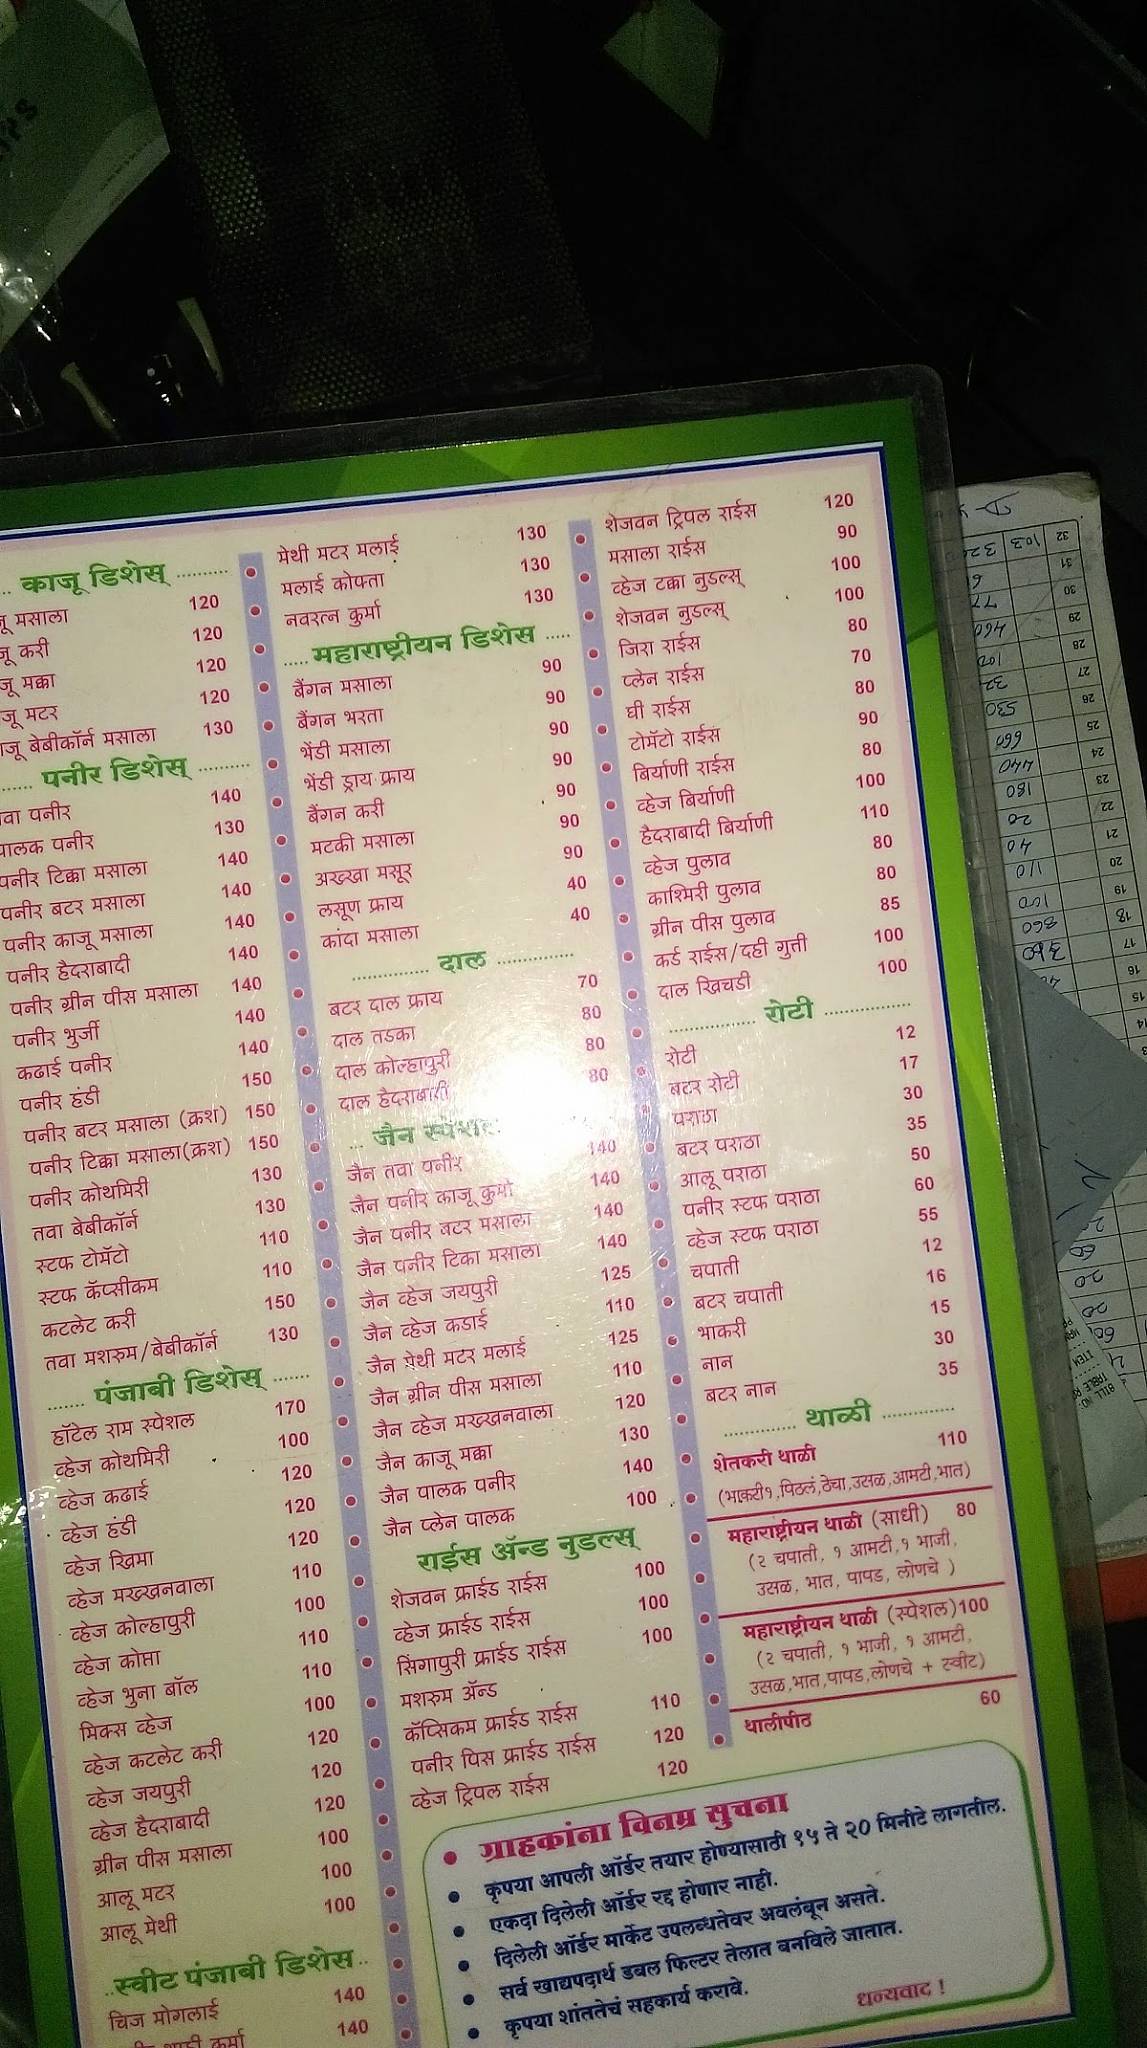 काजू डिशेस्
मसाला 120
करी 120
मक्का 120
मटर 120
बेबीकॉर्न मसाला 130
पनीर डिशेस्
पनीर 140
पालक पनीर 130
पनीर टिक्का मसाला 140
पनीर बटर मसाला 140
पनीर काजू मसाला 140
पनीर हैदराबादी 140
पनीर ग्रीन पीस मसाला 140
पनीर भुर्जी 140
कढाई पनीर 140
पनीर हंडी 150
पनीर बटर मसाला (क्रश) 150
पनीर टिक्का मसाला(क्रश) 150
पनीर कोथमिरी 130
तवा बेबीकॉर्न 130
स्टफ टोमॅटो 110
स्टफ कॅप्सीकम 110
कटलेट करी 150
तवा मशरुम/बेबीकॉर्न 130
पंजाबी डिशेस्
हॉटेल राम स्पेशल 170
व्हेज कोथमिरी 100
व्हेज कढाई 120
व्हेज हंडी 120
व्हेज खिमा 120
व्हेज मख्खनवाला 110
व्हेज कोल्हापुरी 100
व्हेज कोप्ता 110
व्हेज भुना बॉल 110
मिक्स व्हेज 100
व्हेज कटलेट करी 120
व्हेज जयपुरी 120
व्हेज हैदराबादी 120
ग्रीन पीस मसाला 100
आलू मटर 100
आलू मेथी 100
स्वीट पंजाबी डिशेस
चिज मोगलाई 140
कुर्मा 140
मेथी मटर मलाई 130
मलाई कोफ्ता 130
नवरत्न कुर्मा 130
महाराष्ट्रीयन डिशेस
बैंगन मसाला 90
बैंगन भरता 90
भेंडी मसाला 90
भेंडी ड्राय फ्राय 90
बैंगन करी 90
मटकी मसाला 90
अख्खा मसूर 90
लसूण फ्राय 40
कांदा मसाला 40
दाल
बटर दाल फ्राय 70
दाल तडका 80
दाल कोल्हापुरी 80
दाल हैदराबादी 80
जैन स्पेशल
जैन तवा पनीर 140
जैन पनीर काजू कुर्मा 140
जैन पनीर बटर मसाला 140
जैन पनीर टिका मसाला 140
जैन व्हेज जयपुरी 125
जैन व्हेज कडाई 110
जैन मेथी मटर मलाई 125
जैन ग्रीन पीस मसाला 110
जैन व्हेज मख्खनवाला 120
जैन काजू मक्का 130
जैन पालक पनीर 140
जैन प्लेन पालक 100
राईस अ‍ॅन्ड नुडल्स्
शेजवन फ्राईड राईस 100
व्हेज फ्राईड राईस 100
सिंगापुरी फ्राईड राईस 100
मशरुम अ‍ॅन्ड
कॅप्सिकम फ्राईड राईस 110
पनीर पिस फ्राईड राईस 120
व्हेज ट्रिपल राईस 120
शेजवन ट्रिपल राईस 120
मसाला राईस 90
व्हेज टक्का नुडल्स् 100
शेजवन नुडल्स् 100
जिरा राईस 80
प्लेन राईस 70
घी राईस 80
टोमॅटो राईस 90
बिर्याणी राईस 80
व्हेज बिर्याणी 100
हैदराबादी बिर्याणी 110
व्हेज पुलाव 80
काश्मिरी पुलाव 80
ग्रीन पीस पुलाव 85
कर्ड राईस/दही गुत्ती 100
दाल खिचडी 100
रोटी
रोटी 12
बटर रोटी 17
पराठा 30
बटर पराठा 35
आलू पराठा 50
पनीर स्टफ पराठा 60
व्हेज स्टफ पराठा 55
चपाती 12
बटर चपाती 16
भाकरी 15
नान 30
बटर नान 35
थाळी
शेतकरी थाळी 110
(भाकरी१,पिठलं,ठेचा,उसळ,आमटी,भात)
महाराष्ट्रीयन थाळी (साधी) 80
(२ चपाती, १ आमटी,१ भाजी,
उसळ, भात, पापड, लोणचे )
महाराष्ट्रीयन थाळी (स्पेशल)100
(२ चपाती, १ भाजी, १ आमटी,
उसळ,भात,पापड,लोणचे + स्वीट)
थालीपीठ 60
ग्राहकांना विनम्र सुचना
कृपया आपली ऑर्डर तयार होण्यासाठी १५ ते २० मिनीटे लागतील.
एकदा दिलेली ऑर्डर रद्द होणार नाही.
दिलेली ऑर्डर मार्केट उपलब्धतेवर अवलंबून असते.
सर्व खाद्यपदार्थ डबल फिल्टर तेलात बनविले जातात.
कृपया शांततेचं सहकार्य करावे.
धन्यवाद !